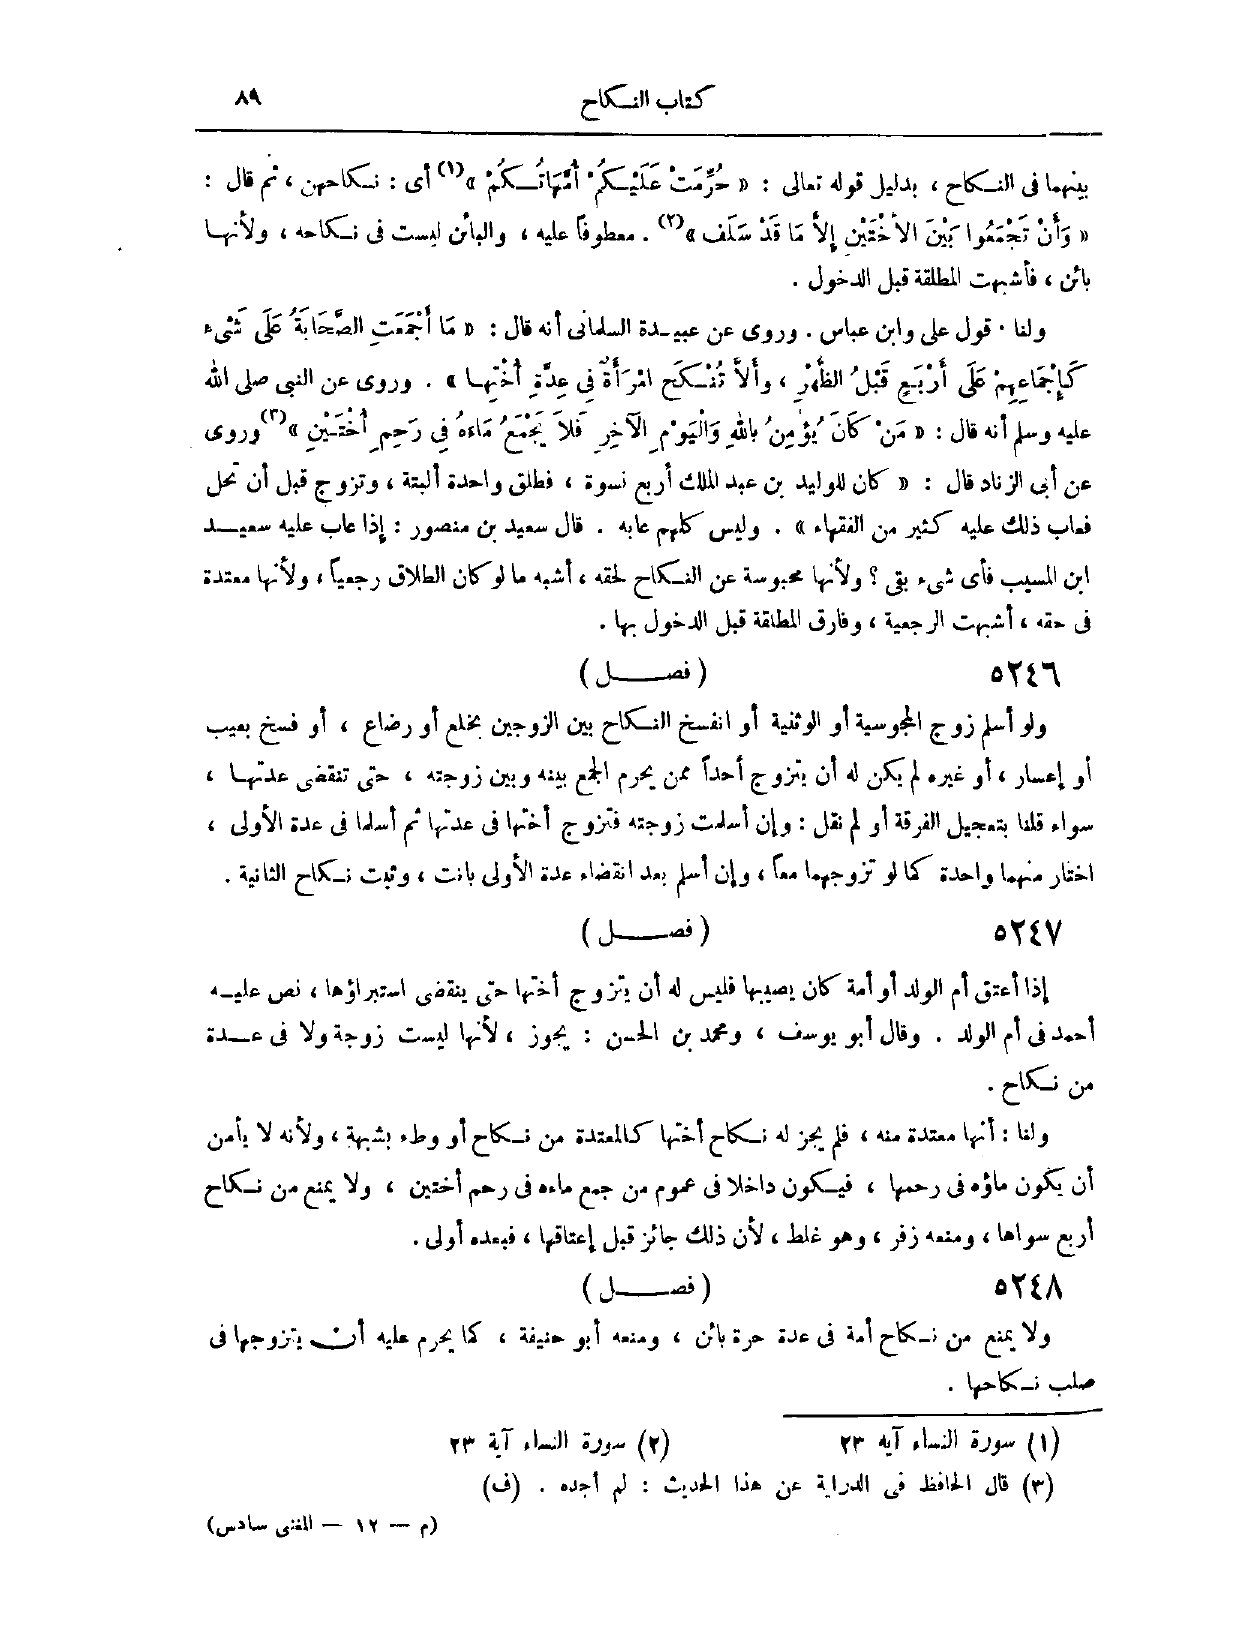 كتاب النكاح ٨٩
بينهما فى النكاح ، بدليل قوله تعالى : « حُرِّمَتْ عَلَيْكُمْ أُمَّهَاتُكُمْ »(١) أى : نكاحهن ، ثم قال :
« وَأَنْ تَجْمَعُوا بَيْنَ الأُخْتَيْنِ إِلاَّ مَا قَدْ سَلَف »(٢) . معطوفاً عليه ، والبائن ليست فى نكاحه ، ولأنها
بائن ، فأشبهت المطلقة قبل الدخول .
ولنا . قول على وابن عباس . وروى عن عبيدة السلمانى أنه قال : « مَا أَجْمَعَتِ الصَّحَابَةُ عَلَى شَىْء
كَإِجْمَاعِهِمْ عَلَى أَرْبَعٍ قَبْلُ الظُّهْرِ ، وألاَّ تُنْكَحَ امْرَأَةٌ فِي عِدَّةِ أُخْتِهَا » . وروى عن النبى صلى الله
عليه وسلم أنه قال : « مَنْ كَانَ يُؤْمِنُ بِاللهِ وَالْيَوْمِ الآخِرِ فَلاَ يَجْمَعُ مَاءَهُ فِي رَحِمِ أُخْتَيْنِ »(٣) وروى
عن أبى الزناد قال : « كان للوليد بن عبد الملك أربع نسوة ، فطلق واحدة ألبتة ، وتزوج قبل أن تحل
فعاب ذلك عليه كثير من الفقهاء » . وليس كلهم عابه . قال سعيد بن منصور : إذا عاب عليه سعيد
ابن المسيب فأى شىء بقى ؟ ولأنها محبوسة عن النكاح لحقه ، أشبه ما لو كان الطلاق رجعياً ، ولأنها معتدة
فى حقه ، أشبهت الرجعية ، وفارق المطلقة قبل الدخول بها .
٥٢٤٦ ( فصل )
ولو أسلم زوج المجوسية أو الوثنية أو انفسخ النكاح بين الزوجين بخلع أو رضاع ، أو فسخ بعيب
أو إعسار ، أو غيره لم يكن له أن يتزوج أحداً ممن يحرم الجمع بينه وبين زوجته ، حتى تنقضى عدتها ،
سواء قلنا بتعجيل الفرقة أو لم نقل : وإن أسلمت زوجته فتزوج أختها فى عدتها ثم أسلما فى عدة الأولى ،
اختار منهما واحدة كما لو تزوجهما معاً ، وإن أسلم بعد انقضاء عدة الأولى بانت ، وثبت نكاح الثانية .
٥٢٤٧ ( فصل )
إذا أعتق أم الولد أو أمة كان يصيبها فليس له أن يتزوج أختها حتى ينقضى استبراؤها ، نص عليه
أحمد فى أم الولد . وقال أبو يوسف ، ومحمد بن الحسن : يجوز ، لأنها ليست زوجة ولا فى عدة
من نكاح .
ولنا : أنها معتدة منه ، فلم يجز له نكاح أختها كالمعتدة من نكاح أو وطء بشبهة ، ولأنه لا يأمن
أن يكون ماؤه فى رحمها ، فيكون داخلا فى عموم من جمع ماءه فى رحم أختين ، ولا يمنع من نكاح
أربع سواها ، ومنعه زفر ، وهو غلط ، لأن ذلك جائز قبل إعتاقها ، فبعده أولى .
٥٢٤٨ ( فصل )
ولا يمنع من نكاح أمة فى عدة حرة بائن ، ومنعه أبو حنيفة ، كما يحرم عليه أن يتزوجها فى
صلب نكاحها .
(١) سورة النساء آيه ٢٣ (٢) سورة النساء آية ٢٣
(٣) قال الحافظ فى الدراية عن هذا الحديث : لم أجده . (ف)
(م — ١٢ — المغنى سادس)